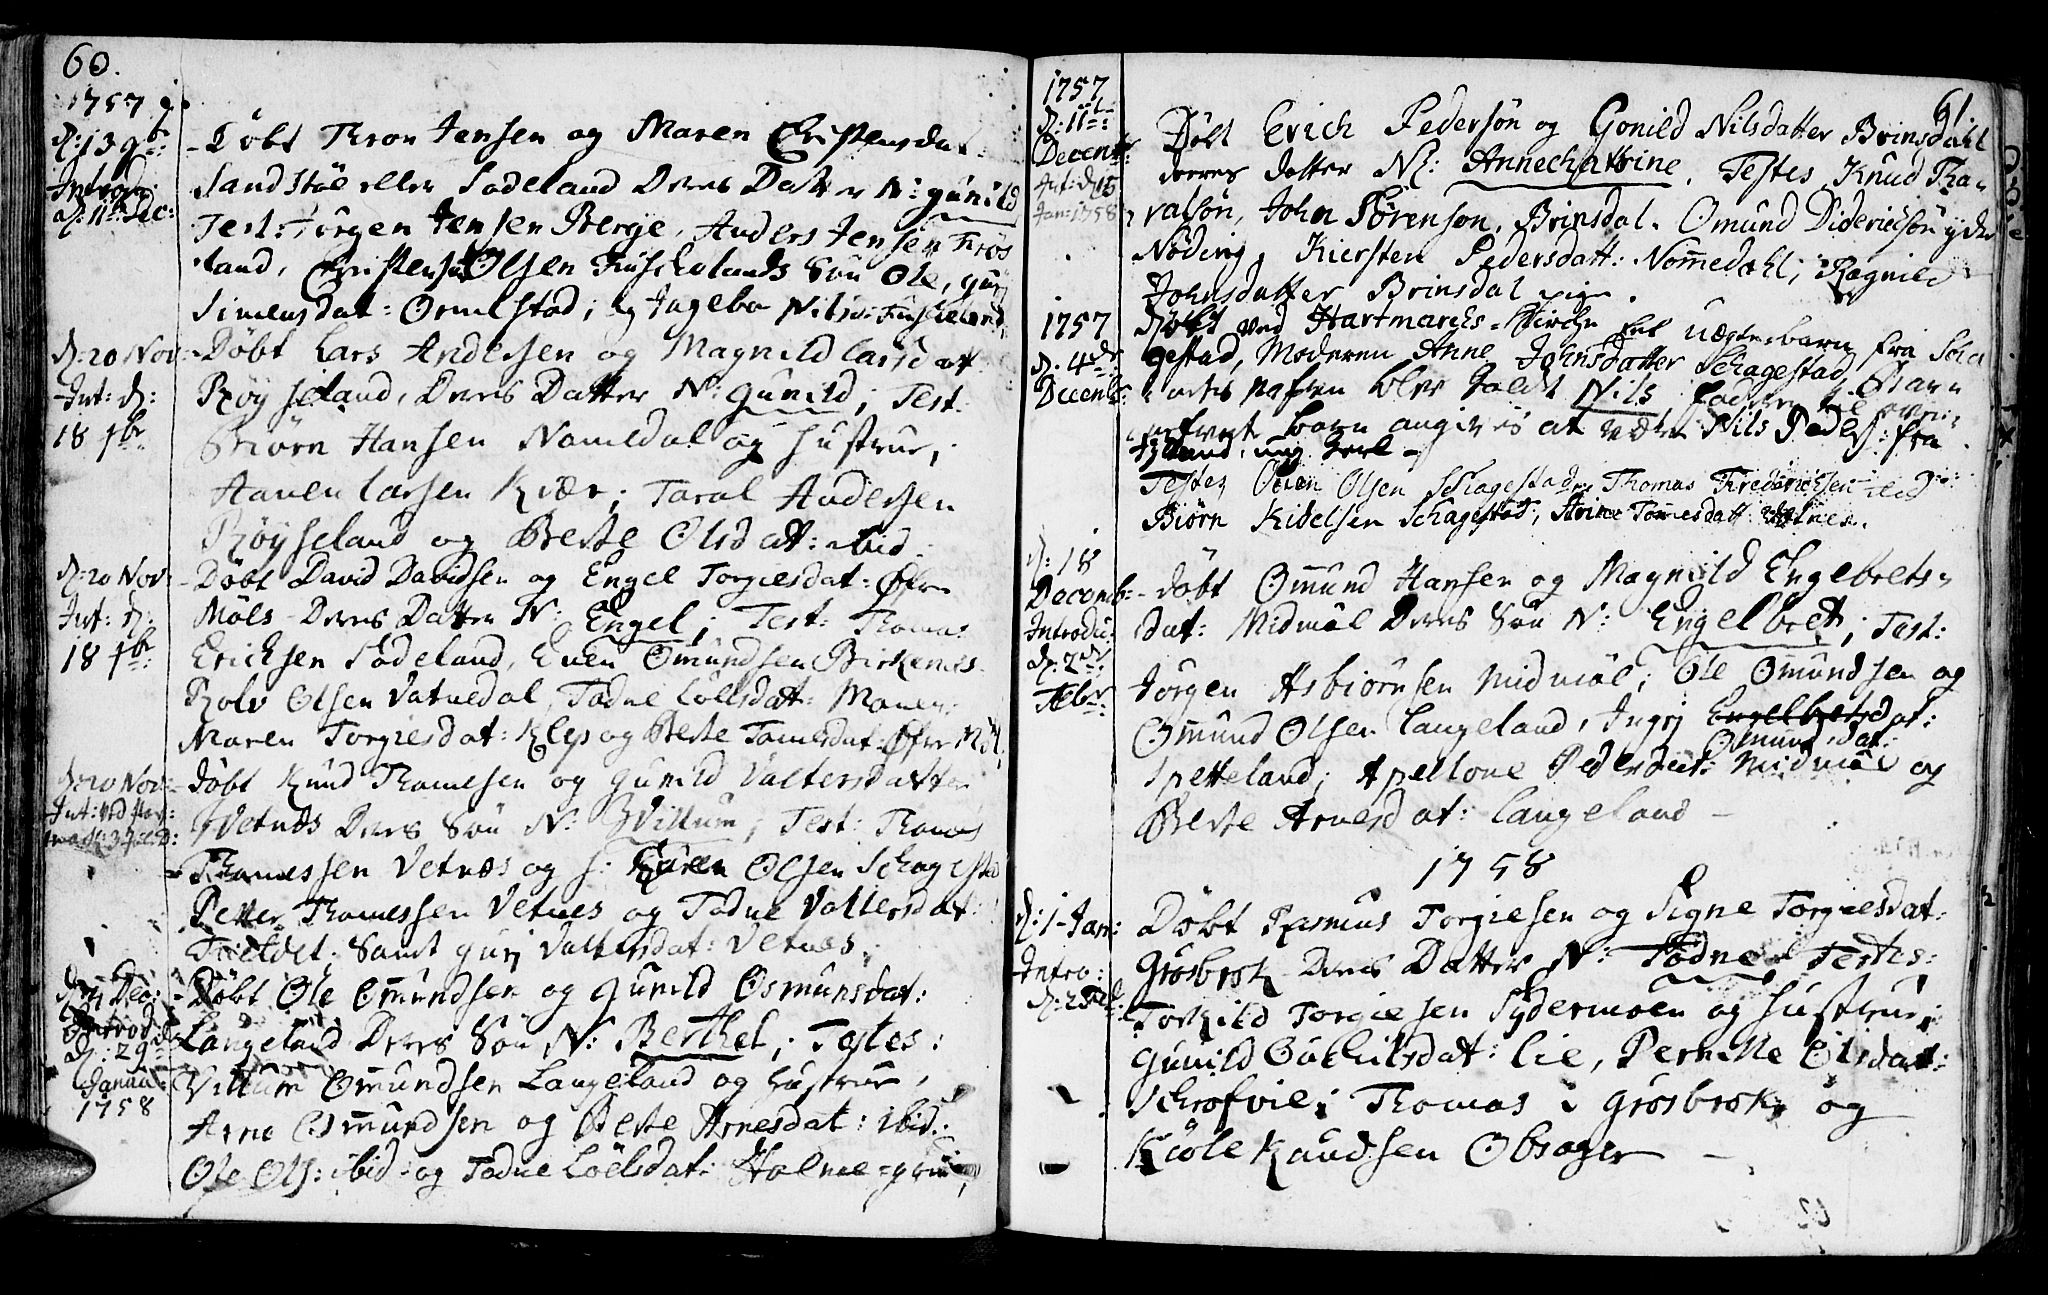 60.
1757
d: 13 9br
Introd:
d: 11te Dec:
Døbt Thron Jensen og Maren Christensdat:
Sandstøl eller Sodeland Deres Datter N: Gunild
Test: Jørgen Jensen Berge, Anders Jensen Frøs
land, Christen Olsen Søn Ole, Gurj
Simensdat: Ormestad; og Ingebor Nilsd:
d: 20 Nov:
Int: d:
18 br
Døbt Lars Andersen og Magnild Larsdat
Røyseland, Deres Datter N: Gunild; Test:
Biørn Hansen Nomedal og Hustrue,
Aanen Larsen Kiær; Taral Andersen
Røyseland og Berte Olsdat: ibid:
d: 20 Nov:
Int: d:
18 br
Døbt David Davidsen og Engel Torgiesdat: Øfre
Møls Deres Datter N: Engel; Test: Thomas
Ericksen Sodeland, Even Omundsen Birkenes
Rolv Olsen Vatnedal, Todne Loelsdat: Moner:
Maren Torgiesdat: Klep og Berte Tomesdat: Øfre Møl,
d: 20 Nov:
Int: ved Har:
mark 3 Juled:
Døbt Knud Thomesen og Gunild Valtersdatter
Vetnæs Deres Søn N: Willum; Test: Thomes
Thomessen Vetnæs og H: Olsen Schagestad
Petter Thomessen Vetnes og Todne Valtersdat:
Trældet; Samt Gurj Valtersdat: Vetnæs;
Dec:
Introd:
d: 29de
Janua:
1758
Døbt Ole Omundsen og Gunild Osmunsdat:
Langeland Deres Søn N: Berthel; Testes:
Villum Omundsen Langeland og Hustrue,
Arne Omundsen og Berte Arnesdat: ibid:
Ole Ols: ibid: og Todne Loelsdat: Holme
61
1757
d: 11te
Decemb:
Int: d 15
Jan: 1758
Døbt Erich Pedersøn og Gonild Nilsdatter Brinsdahl
deres datter N: Annechatrine. Testes Knud Tha-
ralsøn, John Sørensøn, Brinsdal. Omund Diderichsøn ydre
Nøding, Kiersten Pedersdatt: Nommedahl, Ragnild
Johnsdatter Brinsdal pige.
1757
d. 4de
Decemb:
døbt ved Hartmarchs-Kirche Et uægte barn fra Scha
gestad, Moderen Anne Johnsdatter Schagestad, Barn
blev kaldt Nils Faderen til
barn angives at være Nils Peders: fra
ung karl -
Testes Olsen Schagestad, Thomas Fredericksen
Biørn Kidelsen Schagestad, Tomesdatt:
d: 18
Decemb:
Introdu:
d: 2de
Febr:
døbt Omund Hansen og Magnild Engebrets-
dat: Midmøl Deres Søn N: Engelbret; Test:
Jørgen Asbiørnsen Midmøl; Ole Omundsen og
Omund Olsen Langeland, Ingej Engelbretsdat:
Omunddat:
Spetteland; Apellone Pedersdat: Midmøl og
Berte Arnesdat: Langeland -
1758
d: 1 Jan:
Intro:
d: 2 Feb:
Døbt Rasmus Torgiesen og Signe Torgiesdat:
Grosbrok Deres Datter N: Todne Testes:
Torkild Torgiesen Sydermoen og Hustrue;
Gunild dat: Lie, Pernille Olsdat:
Schrofvie; Thomas i Grosbrok og
Kiole Knudsen Obsager -